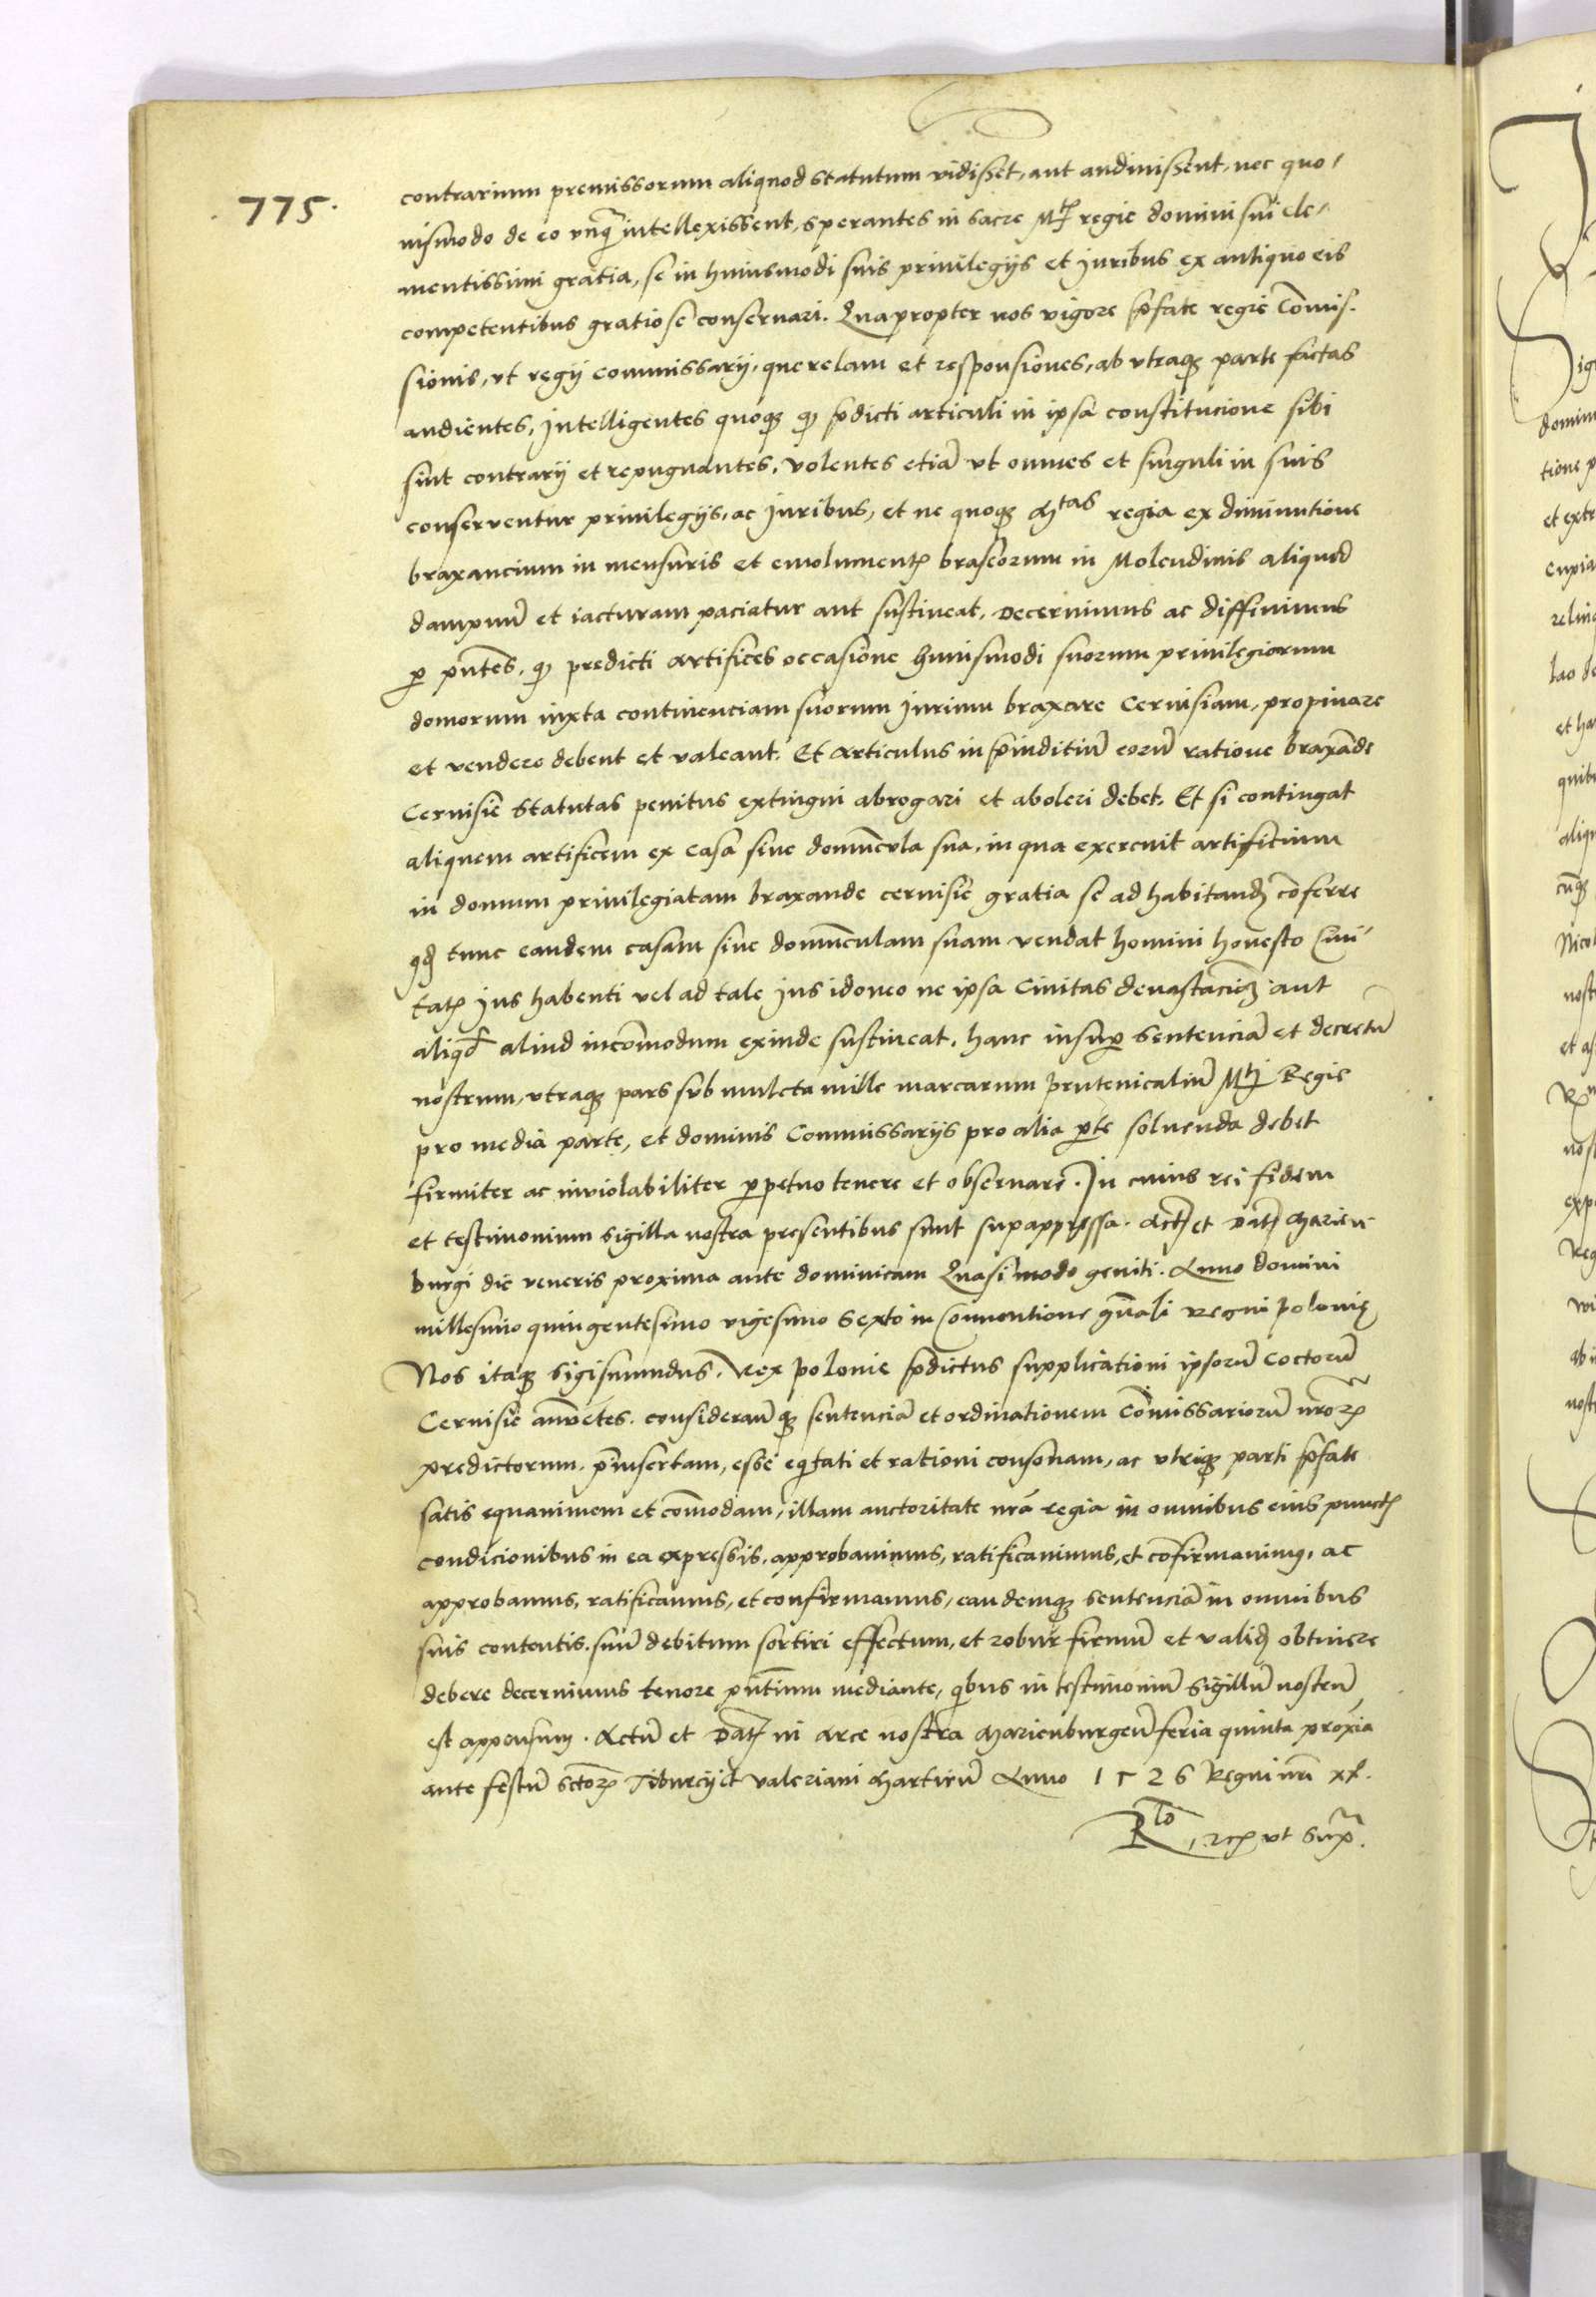 775.
contrarium premissorum aliquod statutum vidisset, aut audivissent, nec quo-
vismodo de eo unq̃ intellexissent, sperantes in sacre Mtis regie domini sui cle-
mentissimi gratia, se in huiusmodi suis privilegijs et Juribus ex antiquo eis
competentibus gratiose conservari. Quapropter nos vigore p̃fate regie Com̃is-
sionis, ut regij commissarij, querelam et responsiones, ab utraq; parte factas
audientes, Intelligentes quoq; q̃ p̃dicti articuli in ipsa constitucione sibi
sint contrarij et repugnantes, volentes etiã ut omnes et singuli in suis
conserventur privilegijs, ac Juribus, et ne quoq; Mtas regia ex diminutione
braxancium in mensuris et emolument̃ braseorum in Molendinis aliquid
dampnũ et iacturam paciatur aut sustineat, Decernimus ac diffinimus
p̱ pñtes, q̃ predicti artifices occasione huiusmodi suorum privilegiorum
domorum iuxta continenciam suorum Jurium braxare Cervisiam, propinare
et vendere debent et valeant. Et Articulus in p̃iuditiũ eorũ ratione braxãde
Cervisie statutas penitus extingui abrogari et aboleri debet. Et si contingat
aliquem artificem ex casa sive domũcula sua, in qua exercuit artificium
in domum privilegiatam braxande cervisie gratia se ad habitand̃ cõferre
qd̃ tunc eandem casam sive domũculam suam vendat homini honesto Civi-
tat̃ Jus habenti vel ad tale Jus idoneo ne ipsa Civitas devastacioẽ aut
aliqd̃ aliud incõmodum exinde sustineat, hanc insup̱ sentenciã et decretũ
nostrum, utraq; pars sub mulcta mille marcarum prutenicaliũ Mti Regie
pro media parte, et dominis Commissarijs pro alia p̱te solvenda debet
firmiter ac inviolabiliter p̱petuo tenere et observare. In cuius rei fidem
et testimonium sigilla nostra presentibus sunt supappressa. Act̃ et Dat̃ Marien
burgi die veneris proxima ante dominicam Quasi modo geniti. Anno domini
millesimo quingentesimo vigesimo sexto in Conventione gñali Regni polonie
Nos itaq; Sigismundus. Rex polonie p̃dictus supplicationi ipsorũ Coctorũ
Cervisie añuẽtes. consideran̄q; sentenciã et ordinationem Com̃issariorũ nr̃oꝝ
predictorum. p̃insertam, esse eq̃tati et rationi consonam, ac utriq; parti p̃fate
satis equanimem et cõmodam, illam auctoritate nrã regia in omnibus eius punct̃
condicionibus in ea expressis, approbavimus, ratificavimus, et cõfirmavimus, ac
approbamus, ratificamus, et confirmamus, eandemq; sentenciã in omnibus
suis contentis. suũ debitum sortiri effectum, et robur firmũ et valid̃ obtinere
debere decernimus tenore pñtium mediante, q̃bus in testimoniũ sigillũ nostrũ
est appensum. Actũ et Dat̃ in Arce nostra Marienburgeñ feria quinta proxĩa
ante festũ sctoꝝ Tiburcij et valeriani Martirũ Anno 1526 Regni nri xx.
Rlo, ut sup̃.